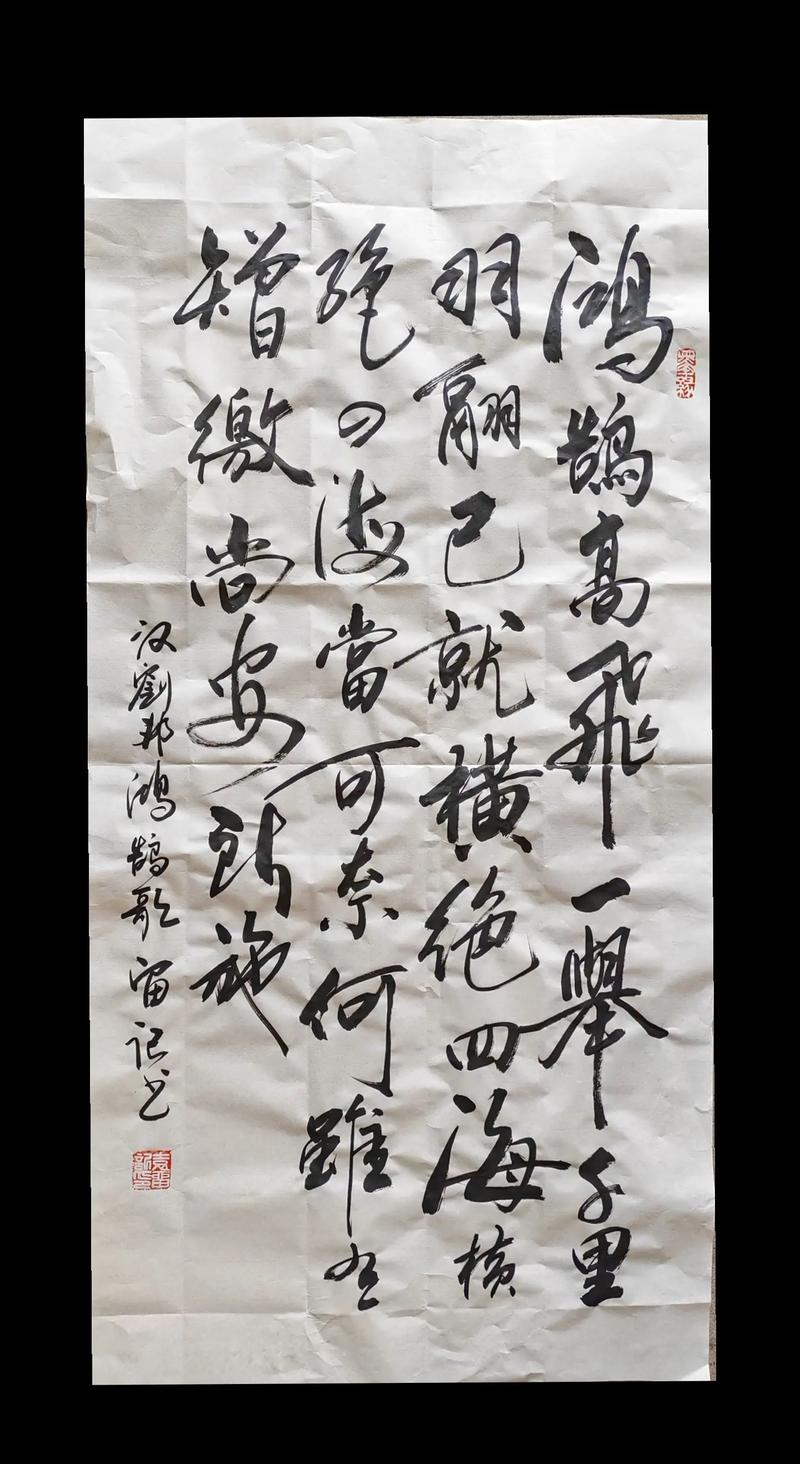 鴻鵠高飛一舉千里
羽翮已就橫絕四海橫
絕四海當可奈何雖有
矰繳尚安所施
汉劉邦鴻鵠歌 雷記书